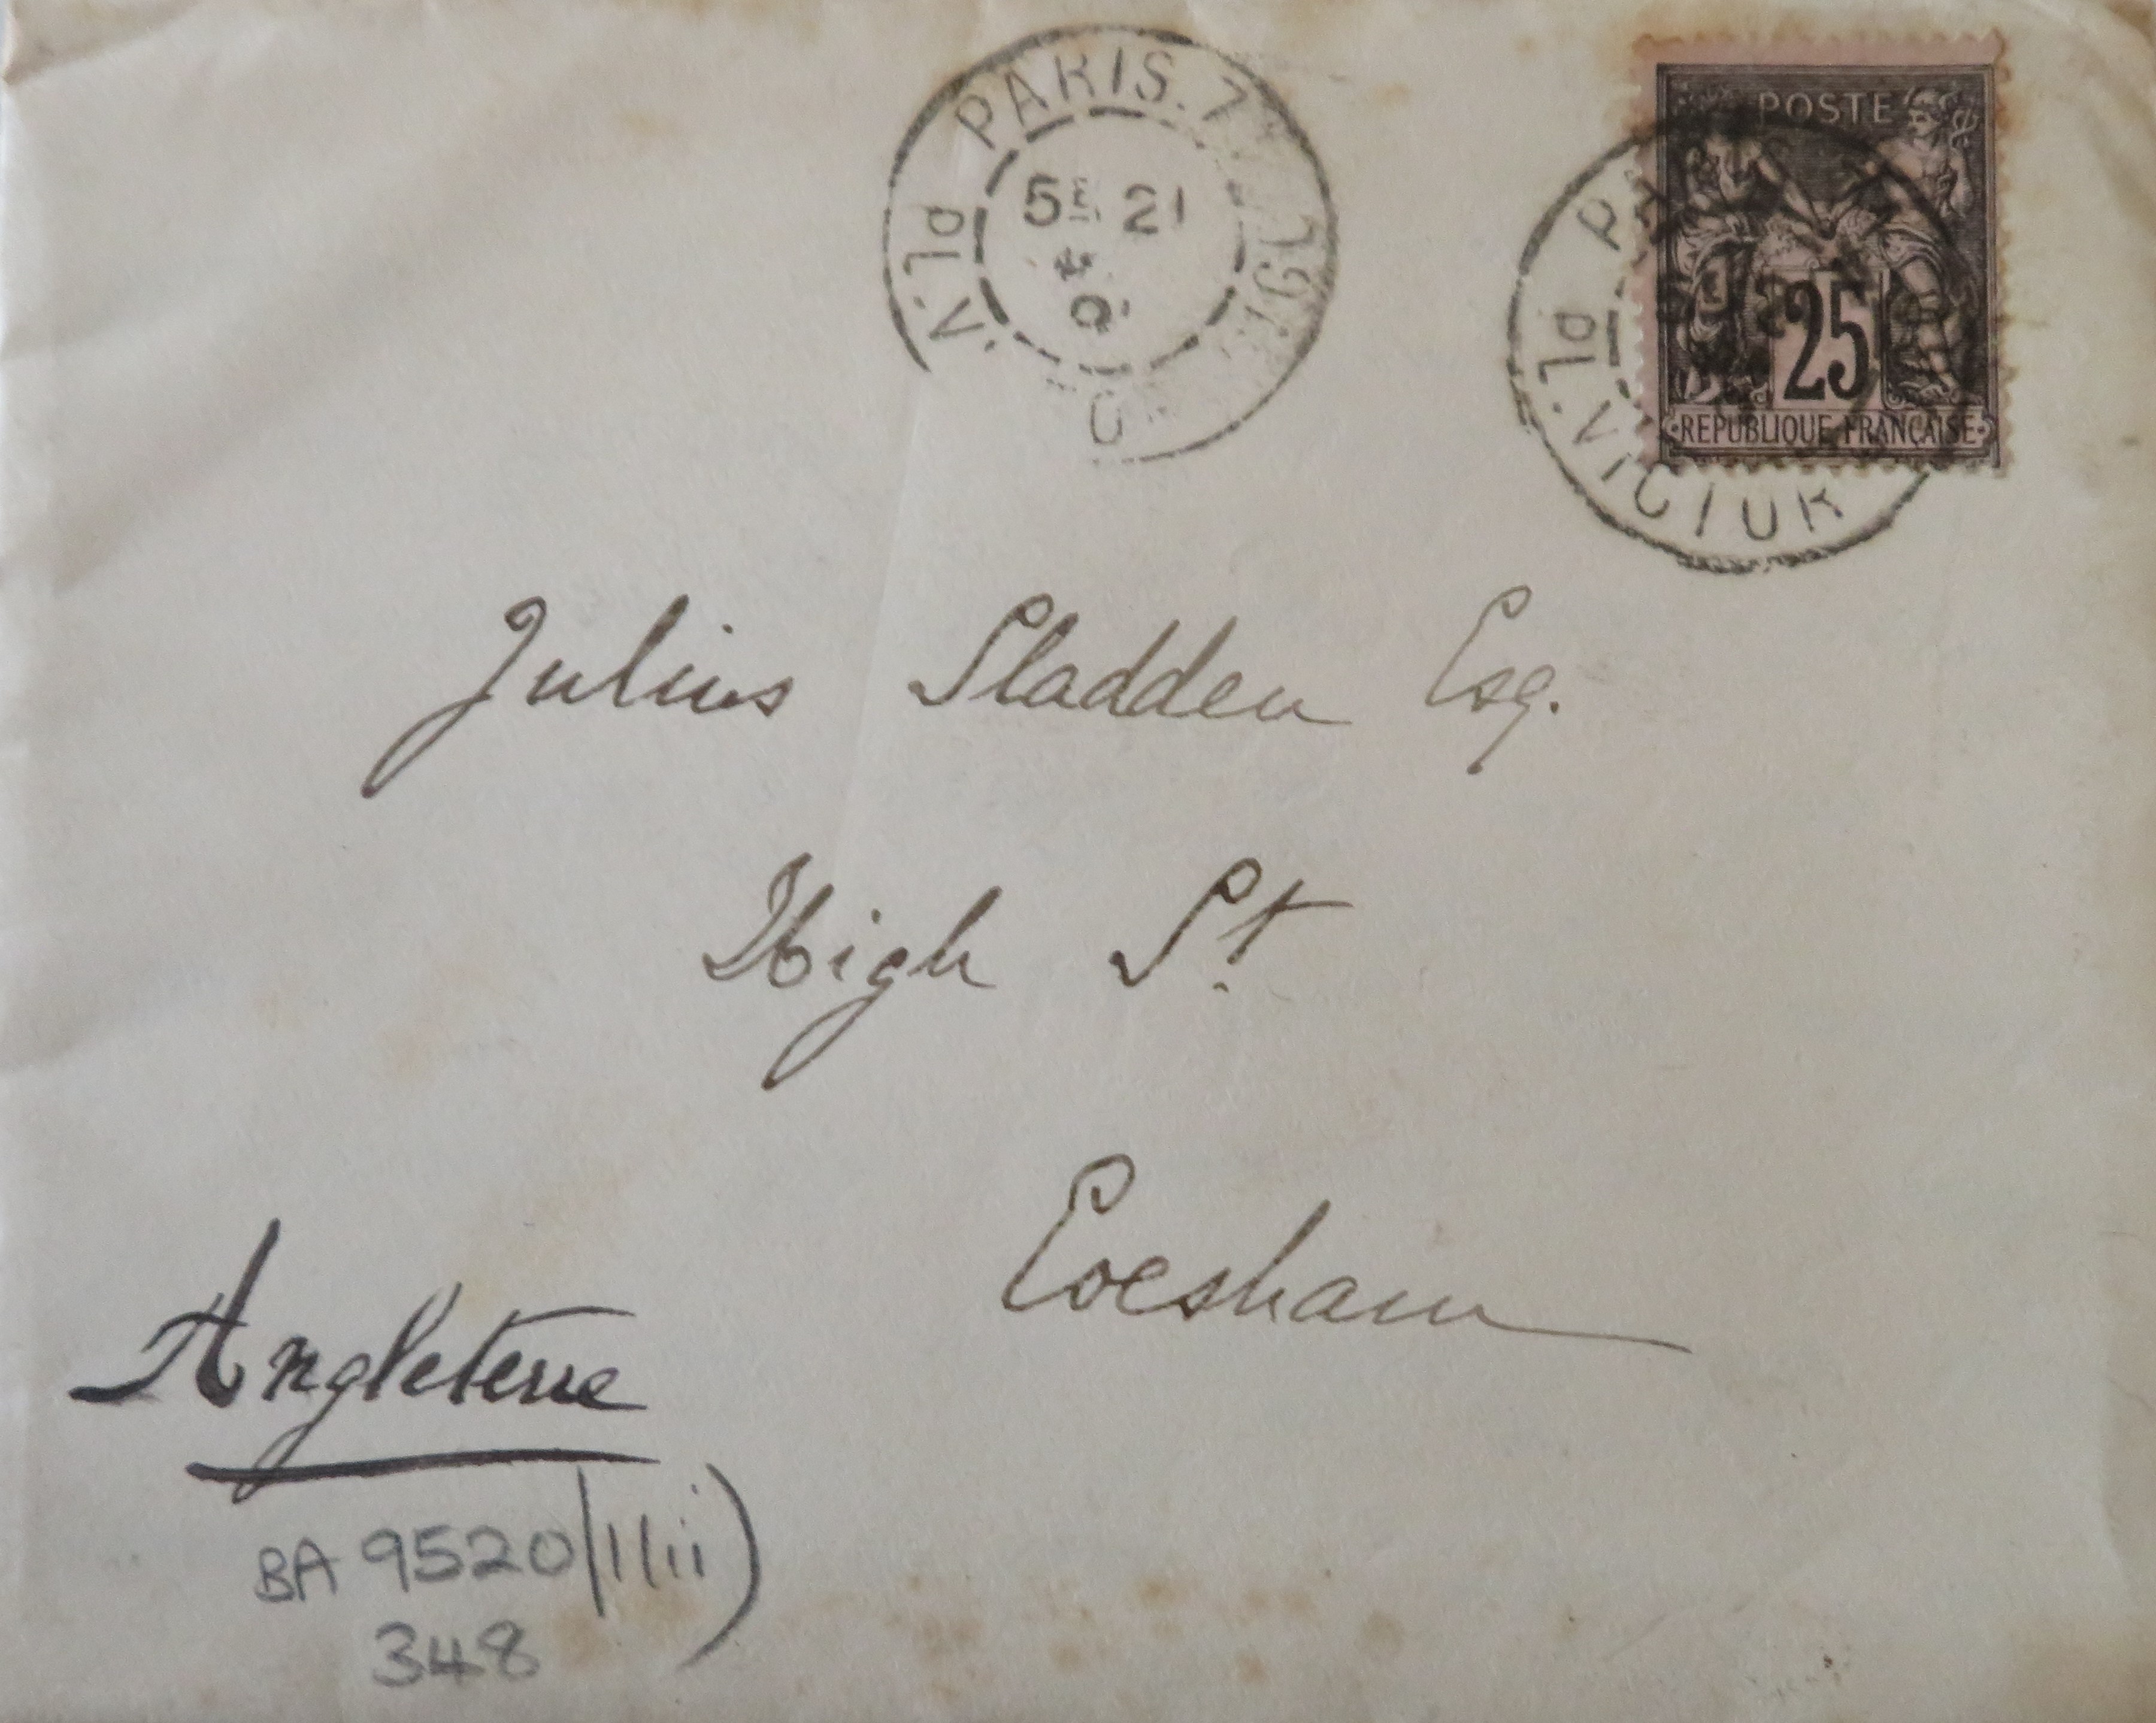 PARIS. 7
PL. V.
5E 21
POSTE
25
REPUBLIQUE FRANÇAISE
PL. VICTOR
Julius Sladden Esq.
High St.
Evesham
Angleterre
BA 9520/1/ii)
348